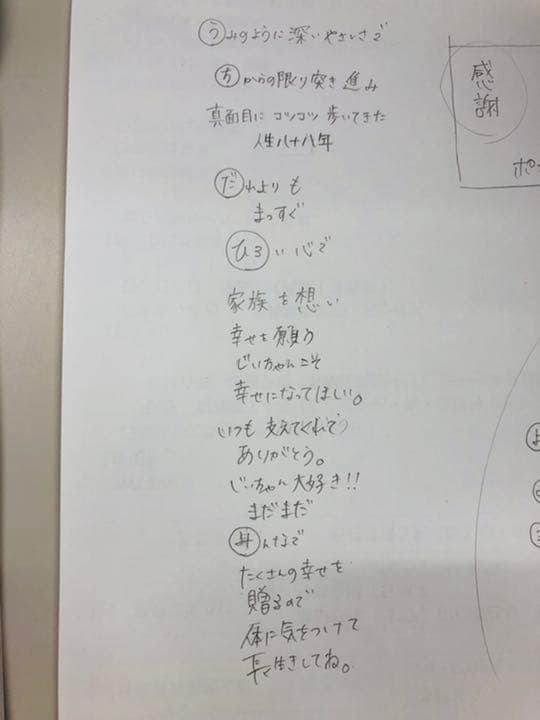 うみのように深いやさしさで
ちからの限り突き進み
真面目に コツコツ 歩いてきた
人生八十八年
だれよりも
まっすぐ
ひろい心で
家族を想い
幸せを願う
じいちゃんこそ
幸せになってほしい。
いつも支えてくれて
ありがとう。
じいちゃん大好き!!
まだまだ
みんなで
たくさんの幸せを
贈るので
体に気をつけて
長生きしてね。
感謝